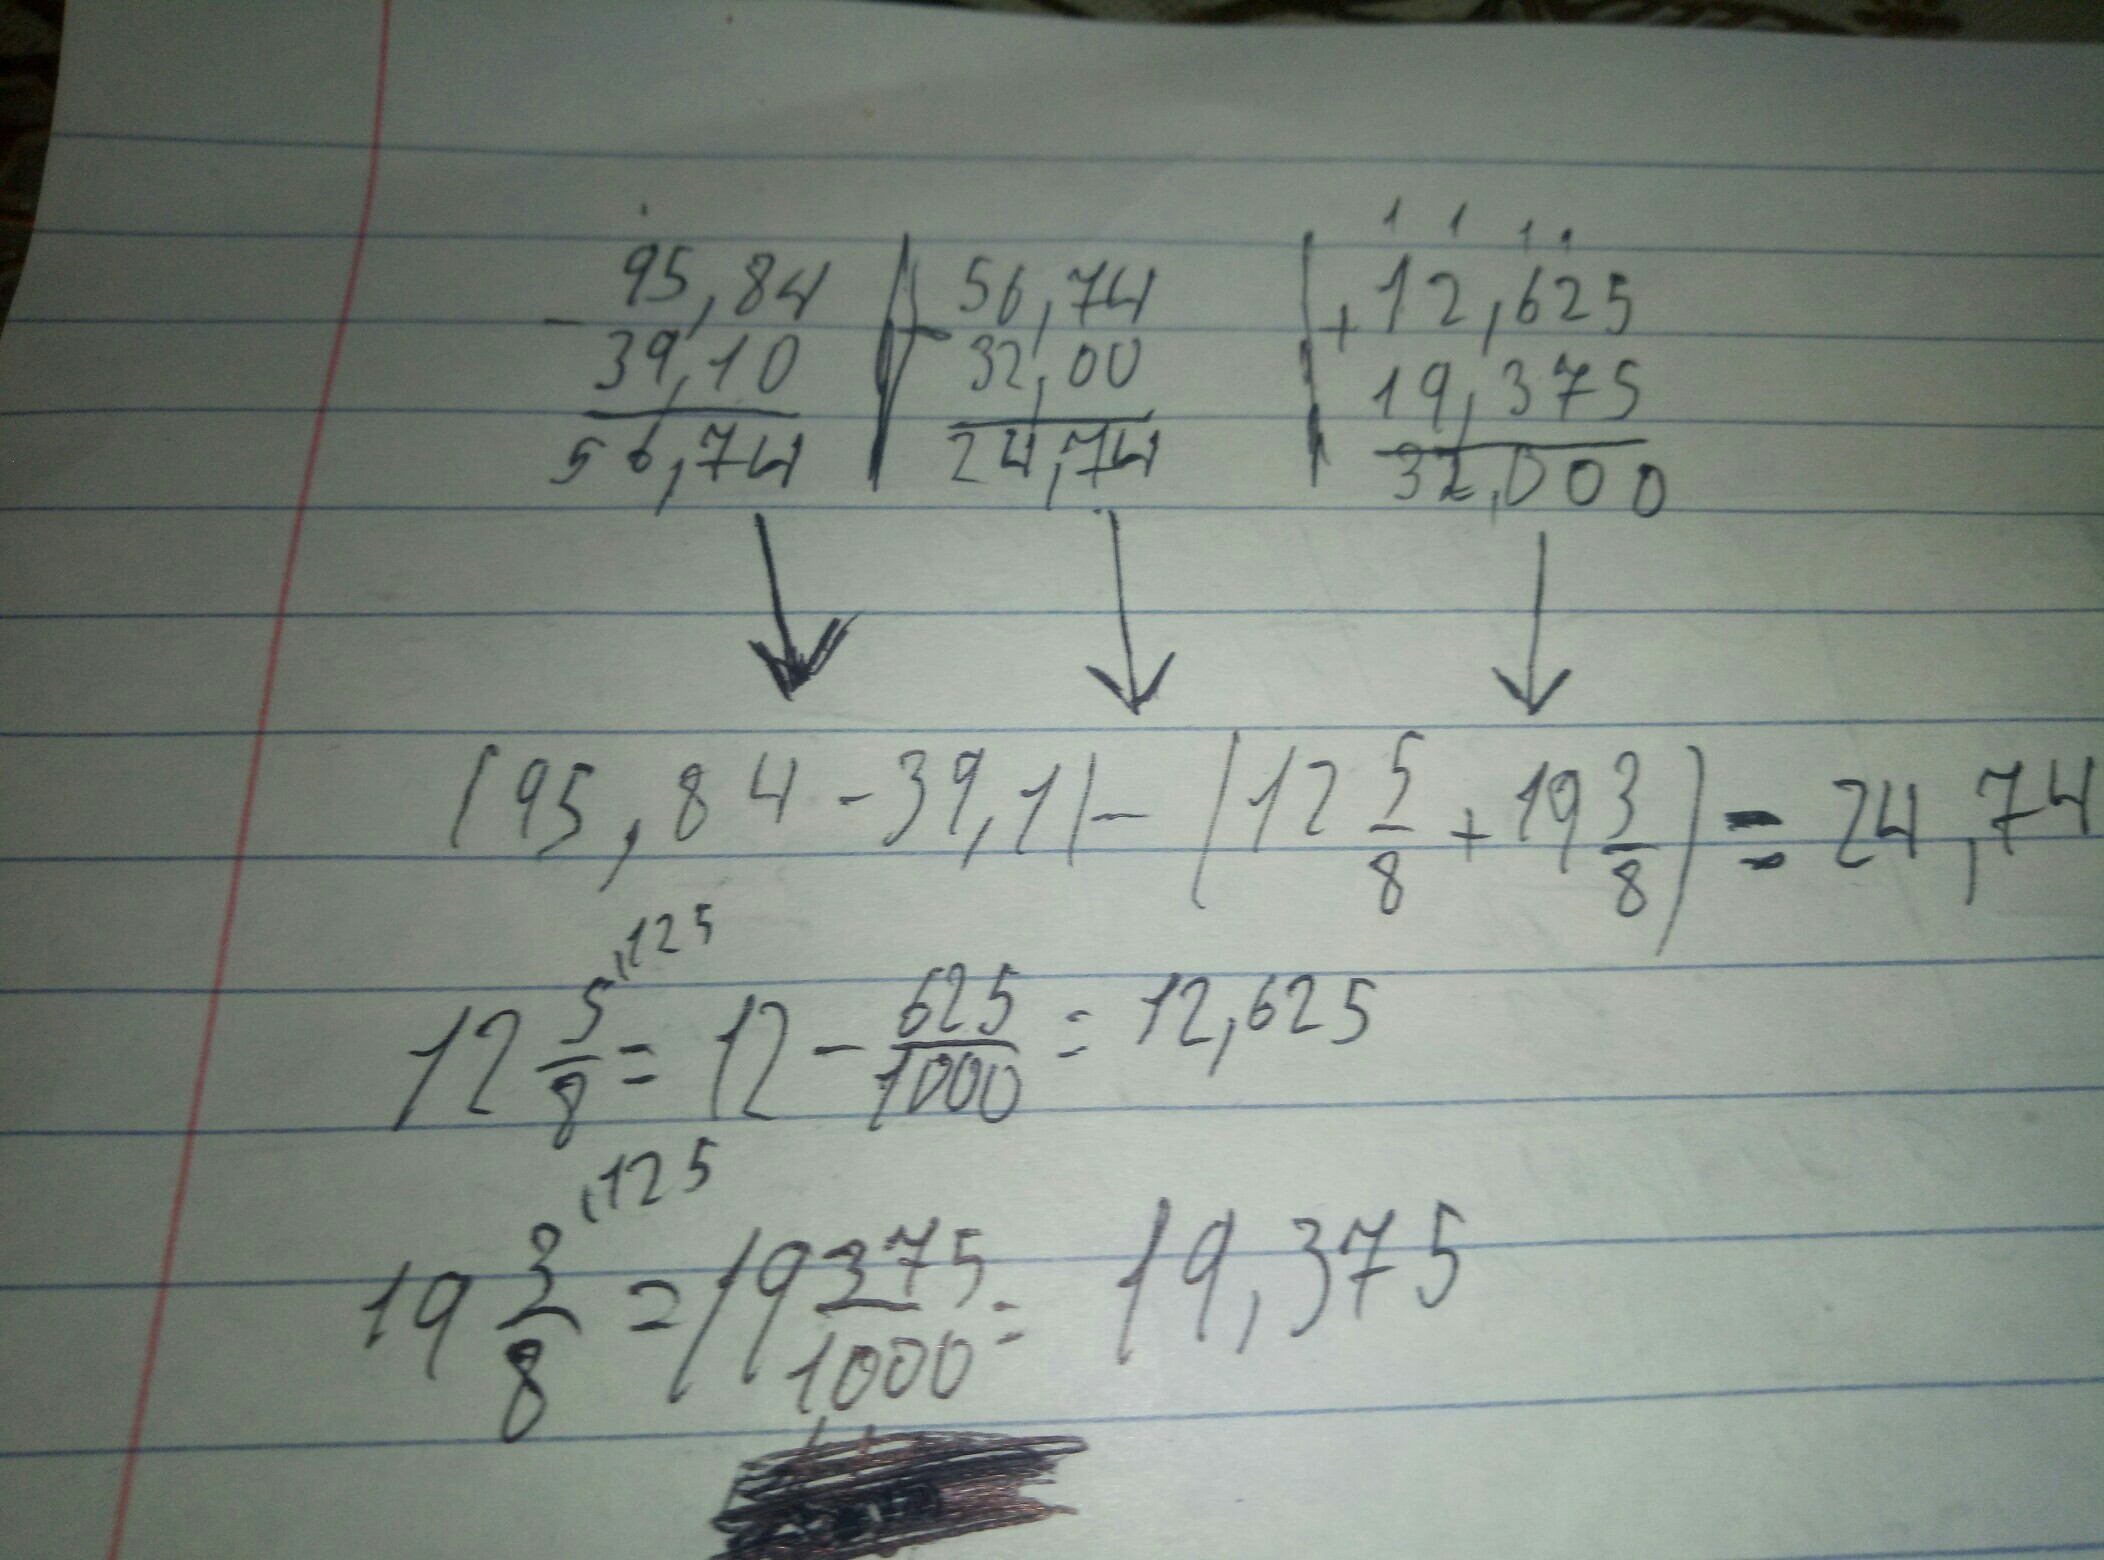 95,84 | 56,74 | 1 1 1 1
- 39,10 | - 32,00 | + 12,625
56,74 | 24,74 | 19,375
32,000
(95,84 - 39,1) - (12 5/8 + 19 3/8) = 24,74
12 5/8 ˈ125 = 12 - 625/1000 = 12,625
19 3/8 ˈ125 = 19 375/1000 = 19,375